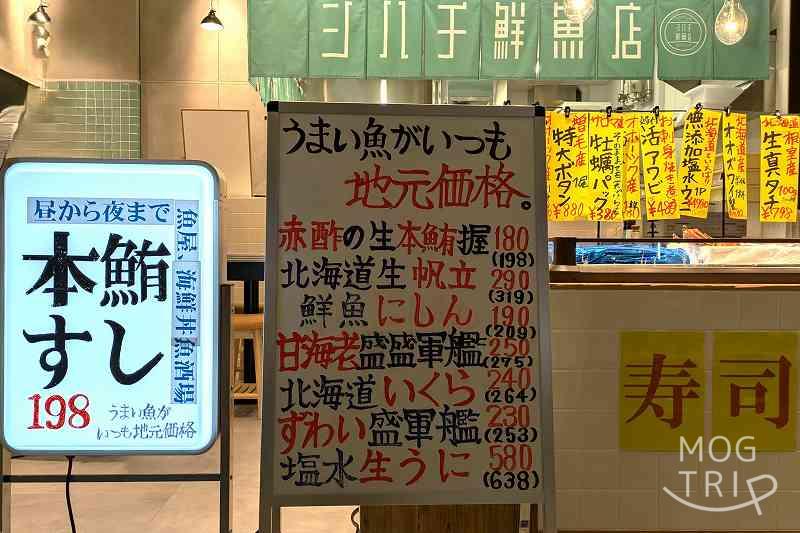 シハチ鮮魚店
うまい魚がいつも
地元価格。
赤酢の生本鮪握 180
(198)
北海道生帆立 290
(319)
鮮魚にしん 190
(209)
甘海老盛盛軍艦 250
(275)
北海道いくら 240
(264)
ずわい盛軍艦 230
(253)
塩水生うに 580
(638)
昼から夜まで
本鮪
すし
198
うまい魚が
いつも地元価格
魚屋 海鮮丼 魚酒場
増毛産
特大ボタン
¥880
牡蠣バーグ
¥380
活アワビ
無添加塩水ウニ
北海道産
生真タチ
100g
¥798
寿司
MOG
TRIP